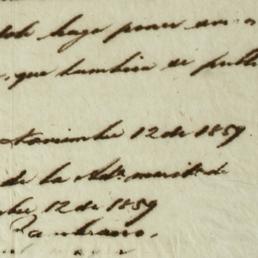 haga poner en
que tambien se publi
Noviembre 12 de 1859
de la Adn. marit. de
bre 12 de 1859
Zambrano.